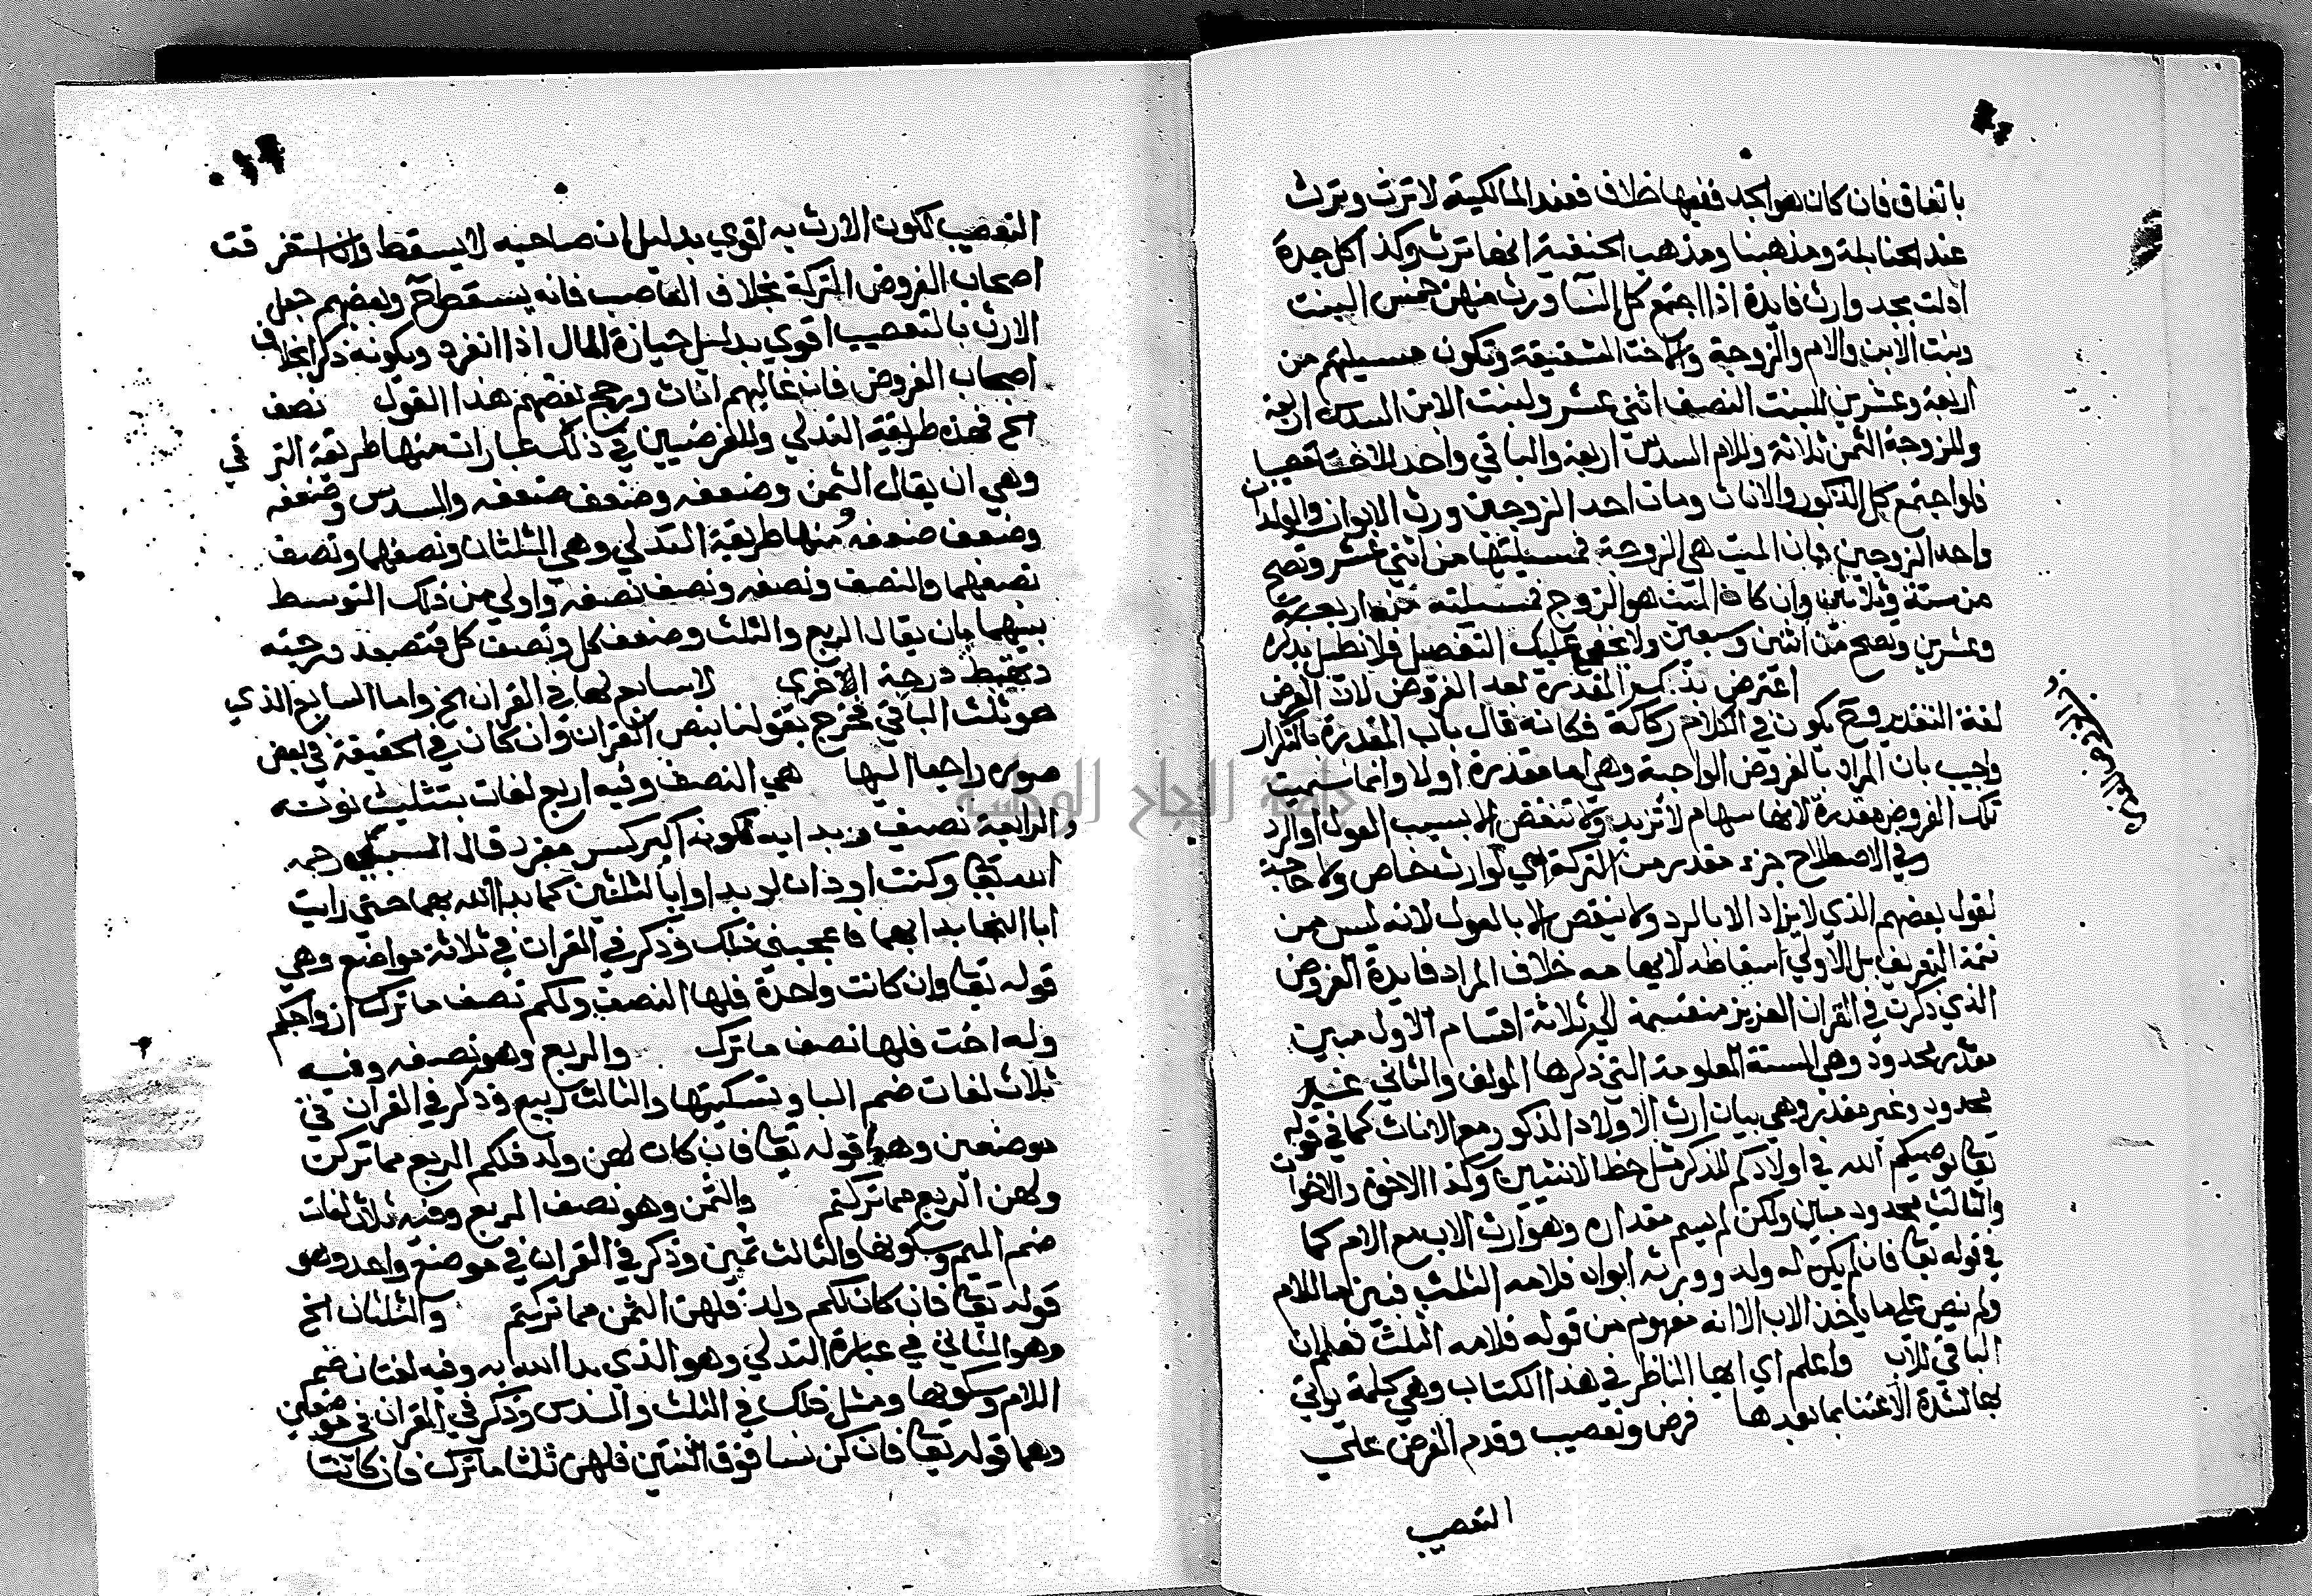 باتفاق فان كان هو الجد ففيها خلاف فعند المالكية لا ترث وترث
عند الحنابلة ومذهبنا ومذهب الحنفية انها ترث وكذا كل جدة
ادلت بجد وارث فايدة اذا اجتمع كل النسا ورث منهن خمس البنت
وبنت الابن والام والزوجة والاخت الشقيقة وتكون مسيلتهم من
اربعة وعشرين للبنت النصف اثني عشر ولبنت الابن السدس اربعة
وللزوجة الثمن ثلاثة وللام السدس اربعة والباقي واحد للاخت تعصيبا
فلو اجتمع كل الذكور والاناث ومات احد الزوجين ورث الابوان والولدان
واحد الزوجين فان الميت هي الزوجة فمسيلتها من اثني عشر وتصح
من ستة وثلاثين وان كان الميت هو الزوج فمسيلته من اربعة
وعشرين وتصح من اثنين وسبعين ولا يخفى عليك التفصيل فلا نطيل بذكره
اعترض بذكر المقدرة بعد الفروض لان الفرض
لغة التقدير فح يكون في الكلام ركاكة فكانه قال باب المقدرة بالتكرار
واجيب بان المراد بالفروض الواجبة وهي اما مقدرة اولا وانما سميت
تلك الفروض مقدرة لانها سهام لا تزيد ولا تنقص الا بسبب العول او الرد
وفي الاصطلاح جزء مقدر من التركة لوارث خاص ولا حاجة
لقول بعضهم الذي لا يزاد الا بالرد ولا ينقص الا بالعول لانه ليس من
تتمة التعريف بل الاولي اسقاطه لايهامه خلاف المراد فايدة الفروض
الذي ذكرت في القران العزيز منقسمة الي ثلاثة اقسام الاول مبين
مقدر محدود وهي الستة المعلومة التي ذكرها المولف والثاني غير
محدود وغير مقدر وهي بيان ارث الاولاد الذكور مع الاناث كما في قوله
تعا يوصيكم الله في اولادكم للذكر مثل حظ الانثيين وكذا الاخوة والاخوات
والثالث محدود مبين ولكن لم يسم مقداره وهو ارث الاب مع الام كما
في قوله تعا فان لم يكن له ولد وورثه ابواه فلامه الثلث فبين ما للام
ولم ينص على ما ياخذ الاب الا انه مفهوم من قوله فلامه الثلث فعلم ان
الباقي للاب واعلم اي ايها الناظر في هذا الكتاب وهي كلمة يوتي
بها لشدة الاعتنا بما بعدها فرض وتعصيب وقدم الفرض علي
التعصيب
التعصيب لكون الارث به اقوي بدليل ان صاحبه لا يسقط وان استغرقت
اصحاب الفروض التركة بخلاف العاصب فانه يسقط ح وبعضهم جعل
الارث بالتعصيب اقوي بدليل حيازة المال اذا انفرد وبكونه ذكرا بخلاف
اصحاب الفروض فان غالبهم اناث ورجح بعضهم هذا القول نصف
الخ فهذه طريقة التدلي وللفرضيين في ذلك عبارات منها طريقة الترقي
وهي ان يقال الثمن وضعفه وضعف ضعفه والسدس وضعفه
وضعف ضعفه ومنها طريقة التدلي وهي الثلثان ونصفها ونصف
نصفهما والنصف ونصفه ونصف نصفه واولي من ذلك التوسط
بينهما بان يقال الربع والثلث وضعف كل ونصف كل فتصعد درجته
وتهبط درجة الاخري لا سابع لها في القران الخ واما السابع الذي
هو ثلث الباقي فخرج بقولنا بنص القران وان كان في الحقيقة في بعض
صوره راجعا اليها هي النصف وفيه اربع لغات بتثليث نونه
والرابعة نصيف وبدا به لكونه اكبر كسر مفرد قال السبكي رحمه
الله تعا وكنت اود ان لو بداوا بالثلثين كما بدا الله بهما حتي رايت
ابا النجا بدا بهما فاعجبني ذلك وذكر في القران في ثلاثة مواضع وهي
قوله تعا وان كانت واحدة فلها النصف ولكم نصف ما ترك ازواجكم
وله اخت فلها نصف ما ترك والربع وهو نصفه وفيه
ثلاث لغات ضم البا وتسكينها والثالث ربيع وذكر في القران في
موضعين وهو قوله تعا فان كان لهن ولد فلكم الربع مما تركن
ولهن الربع مما تركتم والثمن وهو نصف الربع وفيه ثلاث لغات
ضم الميم وسكونها والثالث ثمين وذكر في القران في موضع واحد وهو
قوله تعا فان كان لكم ولد فلهن الثمن مما تركتم والثلثان الخ
وهو الثاني في عبارة التدلي وهو الذي بدا الله به وفيه لغتان ضم
اللام وسكونها ومثل ذلك في الثلث والسدس وذكر في القران في موضعين
وهما قوله تعا فان كن نسا فوق اثنتين فلهن ثلثا ما ترك فان كانتا
جامعة النجاح الوطنية